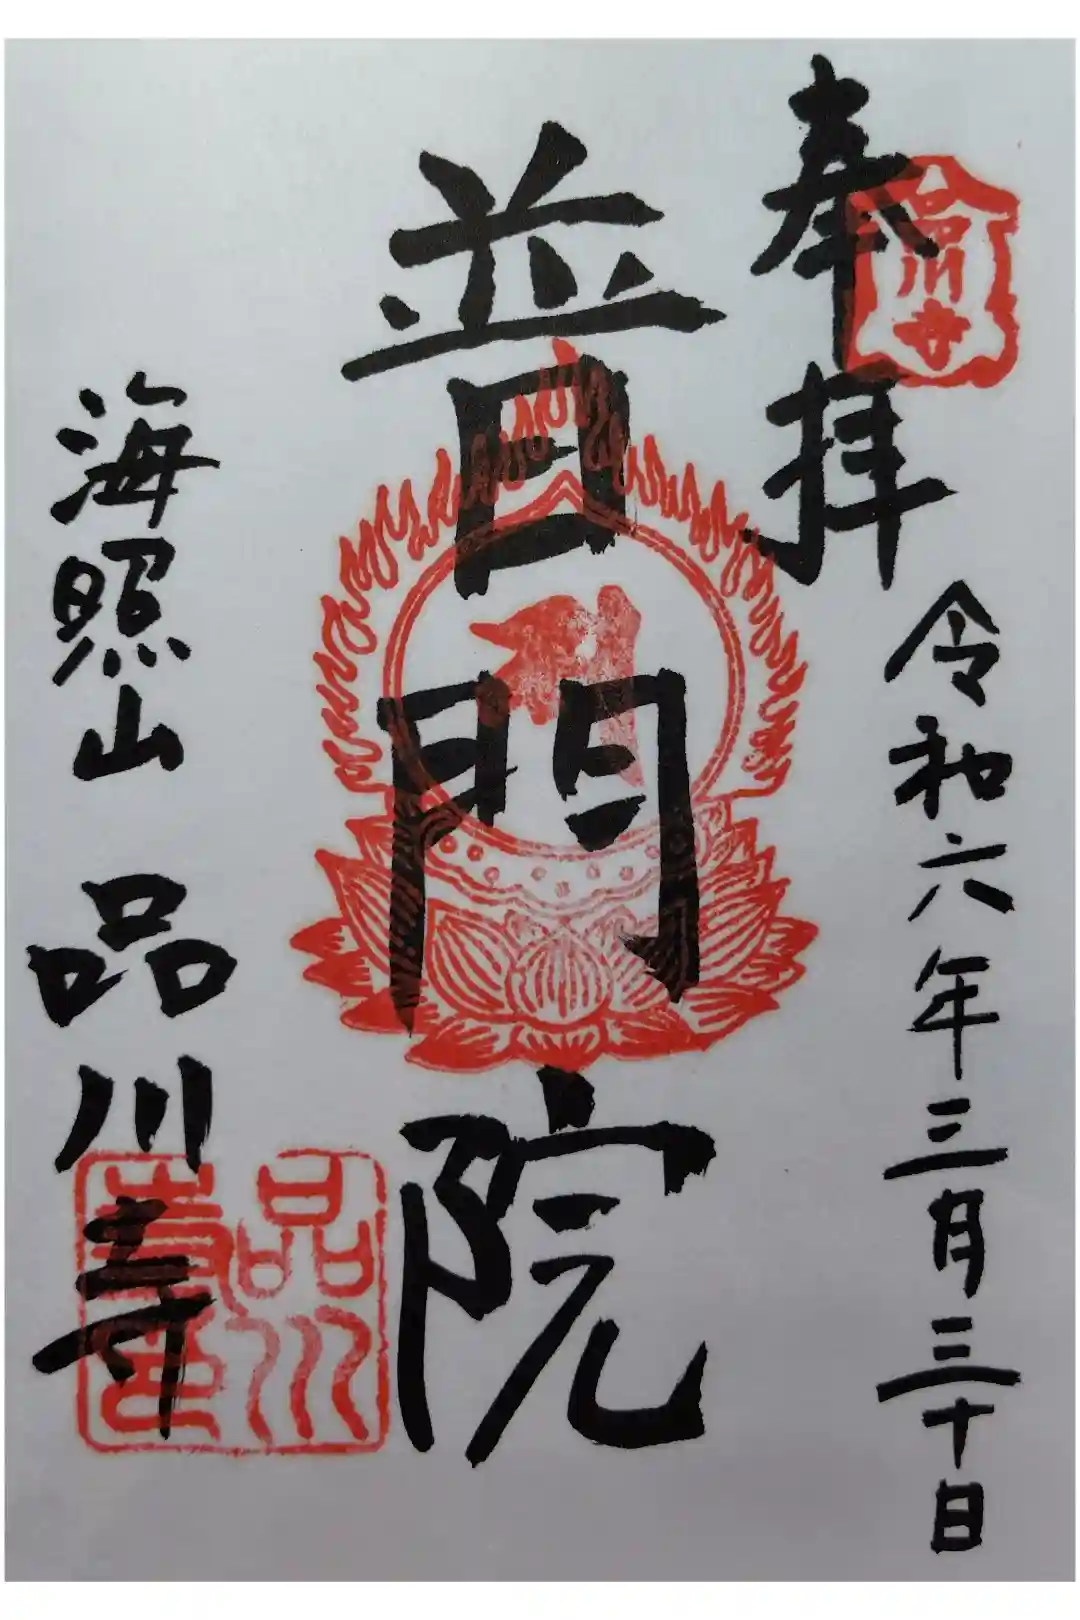 奉拝
品川寺
令和六年三月三十日
普門院
海照山 品川寺
品川寺